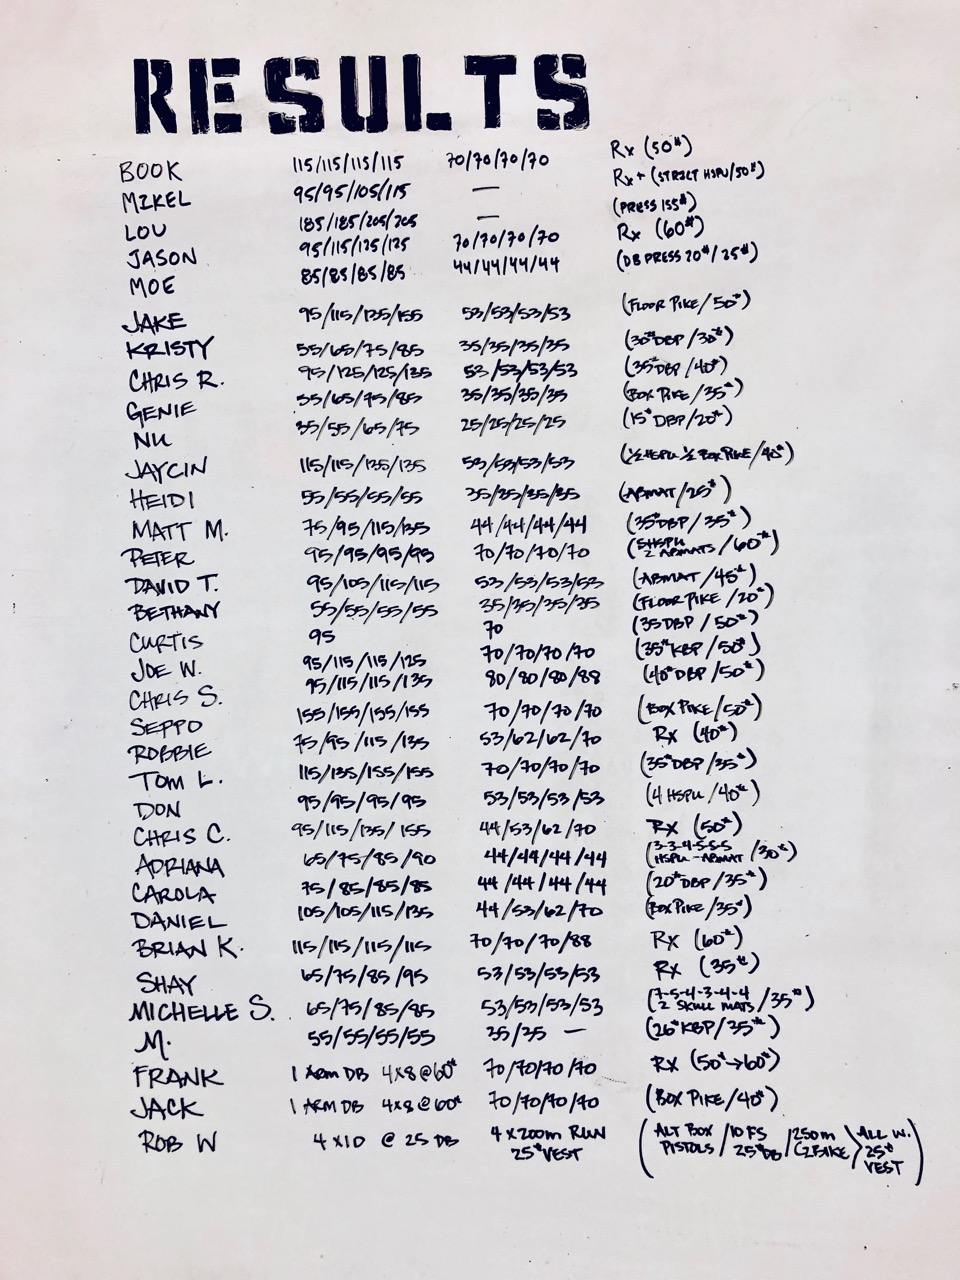 RESULTS
BOOK 115/115/115/115 70/70/70/70 Rx (50#)
MIKEL 95/95/105/115 — Rx+ (STRICT HSPU/50#)
LOU 185/185/205/205 — (PRESS 155#)
JASON 95/115/125/125 70/70/70/70 Rx (60#)
MOE 85/85/85/85 44/44/44/44 (DB PRESS 20#/25#)
JAKE 95/115/135/155 53/53/53/53 (FLOOR PIKE/50#)
KRISTY 55/65/75/85 35/35/35/35 (30#DBP/30#)
CHRIS R. 95/125/125/135 53/53/53/53 (35#DBP/40#)
GENIE 55/65/75/85 35/35/35/35 (BOX PIKE/35#)
NU 35/55/65/75 25/25/25/25 (15#DBP/20#)
JAYCIN 115/115/135/135 53/53/53/53 (1/2 HSPU 1/2 BOX PIKE/40#)
HEIDI 55/55/55/55 35/35/35/35 (ABMAT/25#)
MATT M. 75/95/115/135 44/44/44/44 (35#DBP/35#)
PETER 95/95/95/95 70/70/70/70 (5HSPU 2 ABMATS/60#)
DAVID T. 95/105/115/115 53/53/53/53 (ABMAT/45#)
BETHANY 55/55/55/55 35/35/35/35 (FLOOR PIKE/20#)
CURTIS 95 70 (35DBP/50#)
JOE W. 95/115/115/125 70/70/70/70 (35#KBP/50#)
CHRIS S. 95/115/115/135 80/80/80/88 (40#DBP/50#)
SEPPO 155/155/155/155 70/70/70/70 (BOX PIKE/50#)
ROBBIE 75/95/115/135 53/62/62/70 Rx (40#)
TOM L. 115/135/155/155 70/70/70/70 (35#DBP/35#)
DON 95/95/95/95 53/53/53/53 (4 HSPU/40#)
CHRIS C. 95/115/135/155 44/53/62/70 Rx (50#)
ADRIANA 65/75/85/90 44/44/44/44 (3-3-4-5-5-5 HSPU-ABMAT/30#)
CAROLA 75/85/85/85 44/44/44/44 (20#DBP/35#)
DANIEL 105/105/115/135 44/53/62/70 (BOX PIKE/35#)
BRIAN K. 115/115/115/115 70/70/70/88 Rx (60#)
SHAY 65/75/85/95 53/53/53/53 Rx (35#)
MICHELLE S. 65/75/85/85 53/53/53/53 (7-5-4-3-4-4 2 SKULL MATS/35#)
M. 55/55/55/55 35/35 — (26#KBP/35#)
FRANK 1 ARM DB 4x8@60# 70/70/70/70 Rx (50#→60#)
JACK 1 ARM DB 4x8@60# 70/70/70/70 (BOX PIKE/40#)
ROB W 4x10 @ 25 DB 4x200m RUN (ALT BOX /10 FS /250m ALL W.
25#VEST PISTOLS / 25#DB / C2BIKE 25#
VEST)